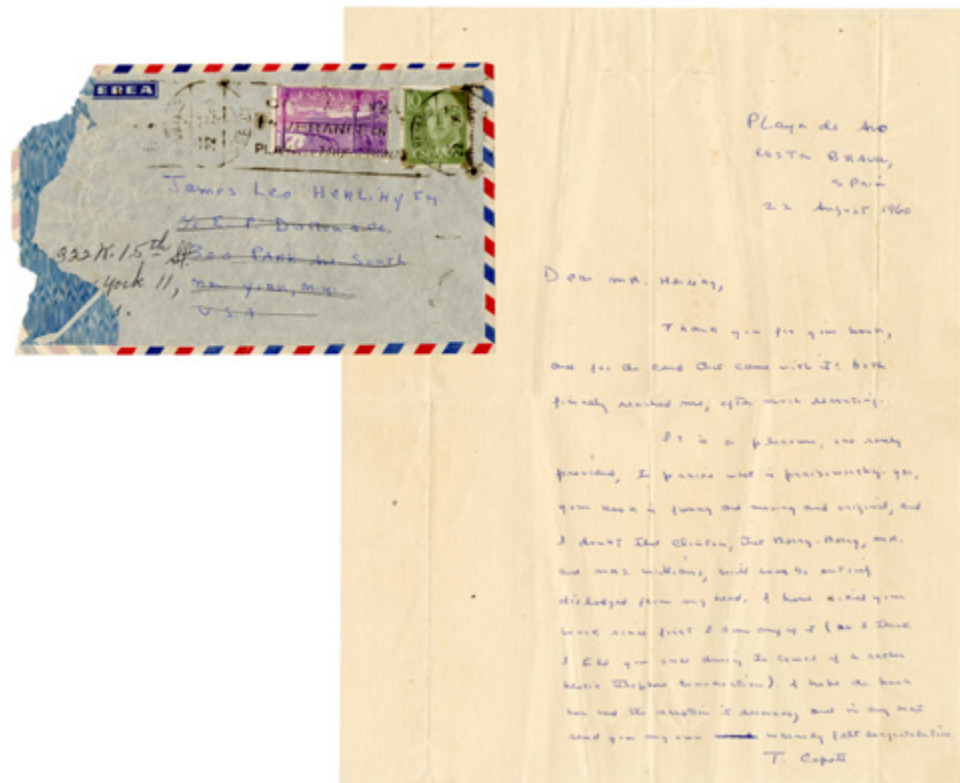 EREA
ESPAÑA
James Leo Herlihy
c/o E. P. Dutton & Co.
300 Park Ave South
New York, N.Y.
USA
222 W. 15th St.
York 11,
Playa de Aro
Costa Brava,
Spain
22 August 1960
Dear Mr. Herlihy,
Thank you for your book,
and for the card that came with it: both
finally reached me, after much detouring.
It is a pleasure, one rarely
provided, to praise what is praiseworthy. Yes,
your book is funny and moving and original, and
I doubt that Clinton, that Berry-Berry, Mr.
and Mrs Williams, will ever be entirely
dislodged from my head. I have liked your
work since first I saw any of it (as I think
I told you once during the course of a rather
hectic telephone conversation). I hope the book
has had the reception it deserves, and in any event
send you my own warmly felt congratulations.
T. Capote